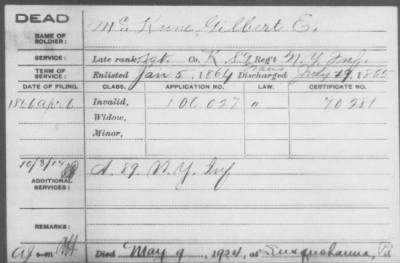 DEAD
NAME OF SOLDIER: Mc Kune, Gilbert E.
SERVICE: Late rank, Sgt. Co. K, 89 Reg't N.Y. Inf.
TERM OF SERVICE: Enlisted Jan 5, 1864 Discharged 1865
DATE OF FILING. CLASS. APPLICATION NO. LAW. CERTIFICATE NO.
1866 Apr 6 Invalid, 106,027 " 70281
Widow,
Minor,
10/3/17
ADDITIONAL SERVICES: A. 89. N.Y. Inf
REMARKS:
Died May 9, 1924, at Susquehanna, Pa